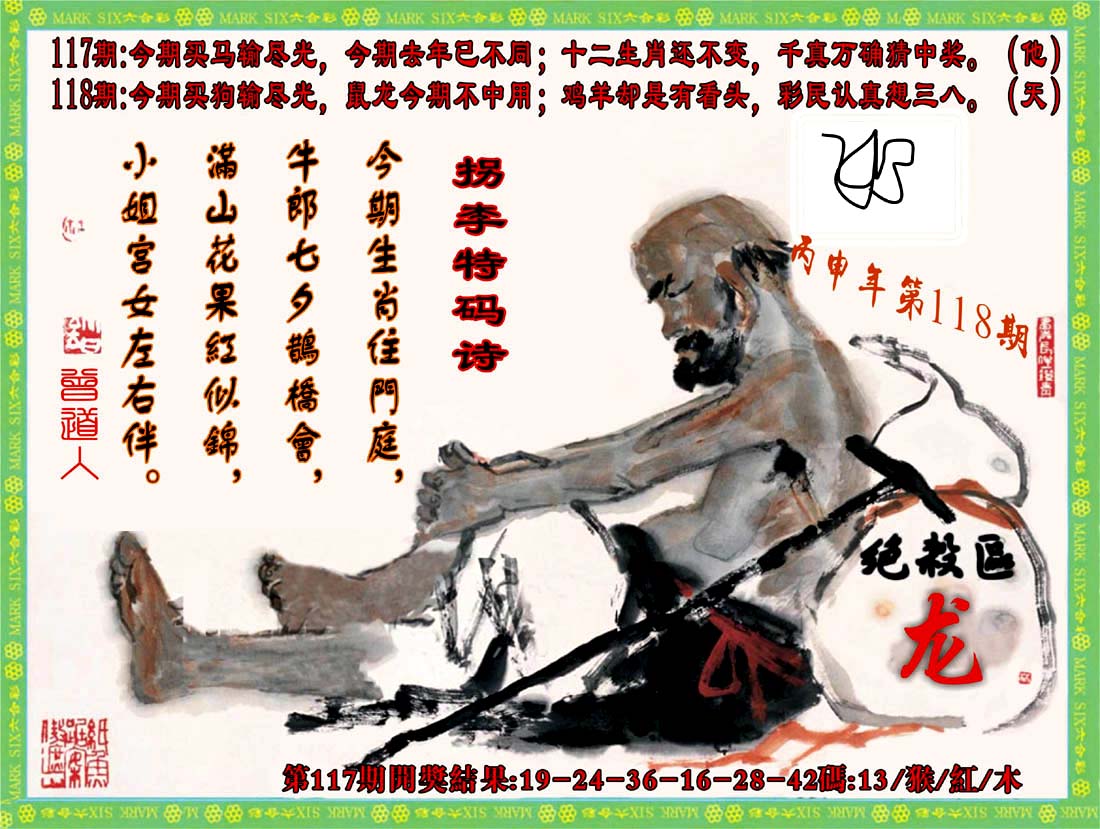 MARK SIX六合彩 MARK SIX六合彩 MARK SIX六合彩 MARK SIX六合彩 MARK SIX六合彩 MARK SIX六合彩
117期:今期买马输尽光，今期去年已不同；十二生肖还不变，千真万确猜中奖。(他)
118期:今期买狗输尽光，鼠龙今期不中用；鸡羊却是有看头，彩民认真想三八。(天)
拐李特码诗
今期生肖住門庭，
牛郎七夕鵲橋會，
滿山花果紅似錦，
小姐宫女左右伴。
曾道人
丙申年第118期
绝殺區
龙
第117期開獎結果:19-24-36-16-28-42碼:13/猴/紅/木